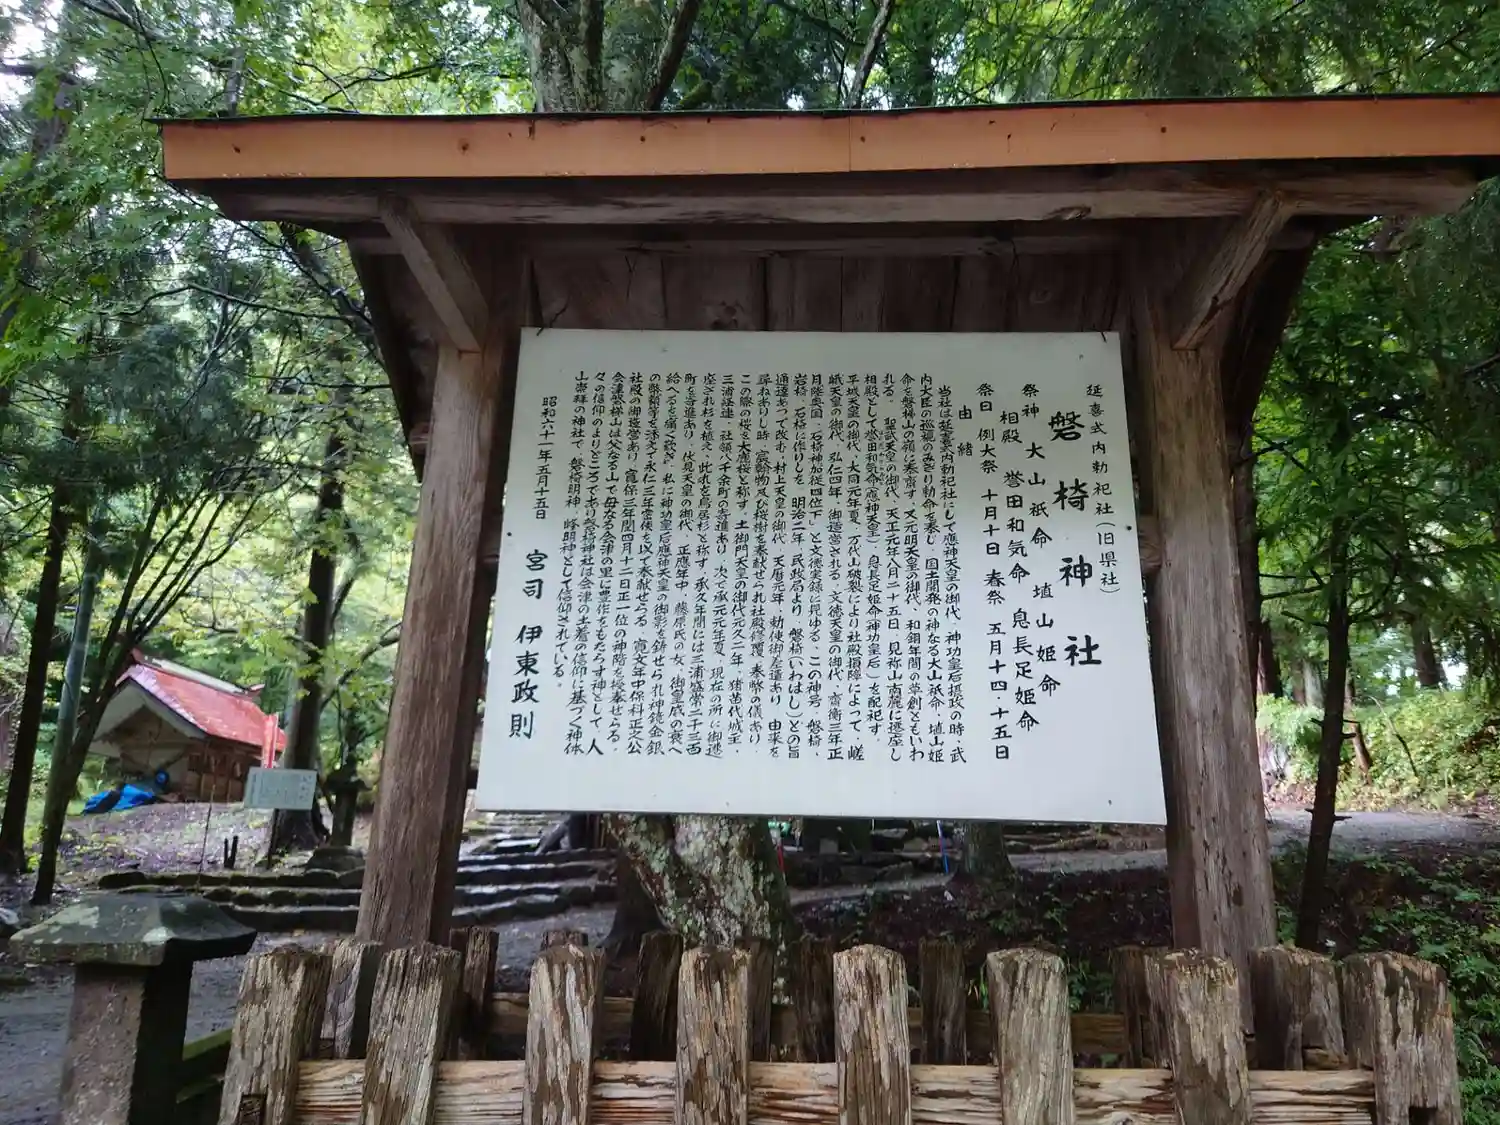 延喜式内勅祀社(旧県社)
磐椅神社
祭神 大山祇命 埴山姫命
相殿 誉田和気命 息長足姫命
祭日 例大祭 十月十日 春祭 五月十四・十五日
由緒
当社は延喜式内勅祀社にして應神天皇の御代、神功皇后摂政の時、武
内大臣の巡視のみぎり勅命を奉じ、国土開発の神なる大山祇命・埴山姫
命を磐梯山の嶺に奉斎す。又元明天皇の御代、和銅年間の草創ともいわ
れる。聖武天皇の御代、天正元年八月二十五日、見祢山南麓に遷座し
相殿として誉田和気命(應神天皇)、息長足姫命(神功皇后)を配祀す。
平城天皇の御代、大同元年夏、万代山破裂により社殿損障によって、嵯
峨天皇の御代、弘仁四年、御造営される。文徳天皇の御代、齊衡三年正
月陸奥国、石椅神加従四位下、と文徳実録に見ゆる。この神号、磐椅、
岩椅、石椅に作りしを、明治二年、民政局より、磐椅(いわはし)との旨
通達あって改む。村上天皇の御代、天暦元年、勅使御差遣あり、由来を
尋ねありし時、宸翰物及び桜樹を奉献せられ社殿修覆、奉幣の儀あり、
この際の桜を大鹿桜と称す。土御門天皇の御代元久二年、猪苗代城主、
三浦経連、社領八千余町の寄進あり、次で承元元年夏、現在の所に御遷
座され杉を植え、此れを鳥居杉と称す。承久年間には三浦盛常二十三西
町を寄進あり、伏見天皇の御代、正應年中、藤原氏の女、御皇威の衰へ
給へるを痛く
私に神功皇后應神天皇の御影を鋳せられ神鏡金銀
の幣額等を添えて永仁三年
使を以て奉献せらる。寛文年中保科正之公
社殿の御造営あり、寛保三年閏四月十二日正一位の神階を授奉せらる。
会津磐梯山は父なる山で母なる会津の里に豊作をもたらす神として、人
々の信仰のよりどころであり磐椅神社は会津の土着の信仰に基づく神体
山崇拝の神社で、磐椅明神、峰明神として信仰されている。
昭和六十一年五月十五日
宮司 伊東政則